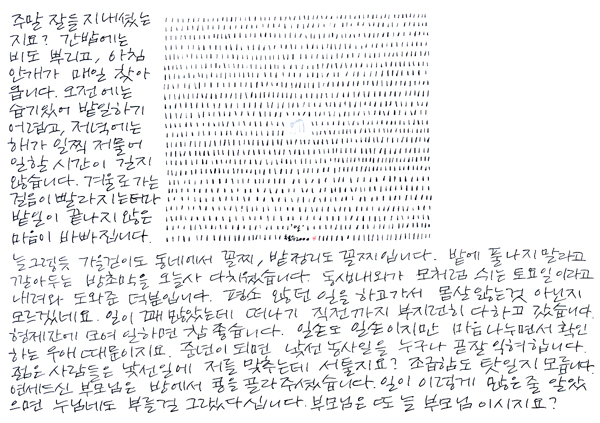 주말 잘들 지내셨는
지요? 간밤에는
비도 뿌리고, 아침
안개가 매일 찾아
옵니다. 오전에는
습기있어 밭일하기
어렵고, 저녁에는
해가 일찍 저물어
일할 시간이 길지
않습니다. 겨울로 가는
걸음이 빨라지는데
밭일이 끝나지 않은
마음이 바빠집니다.
늘 그렇듯 가을걷이도 동네에서 꼴찌, 밭정리도 꼴찌입니다. 밭에 풀나지말라고
깔아두는 방초막을 오늘사 다 치웠습니다. 동생내외가 모처럼 쉬는 토요일이라고
내려와 도와준 덕분입니다. 평소 않던 일을 하고가서 몸살 앓는것 아닌지
모르겠네요. 일이 꽤 많았는데 떠나기 직전까지 부지런히 다하고 갔습니다.
형제간에 모여 일하면 참 좋습니다. 일손도 일손이지만 마음 나누면서 확인
하는 우애 때문이지요. 중년이 되면 낯선 농사일을 누구나 곧잘 익혀합니다.
젊은 사람들은 낯선일에 저를 맞추는데 서툴지요? 조급함도 탓일지 모릅니다.
연세드신 부모님은 밭에서 콩을 골라주셨습니다. 일이 이렇게 많은줄 알았
으면 누님네도 부를걸 그랬다 십니다. 부모님은 또 늘 부모님 이시지요?